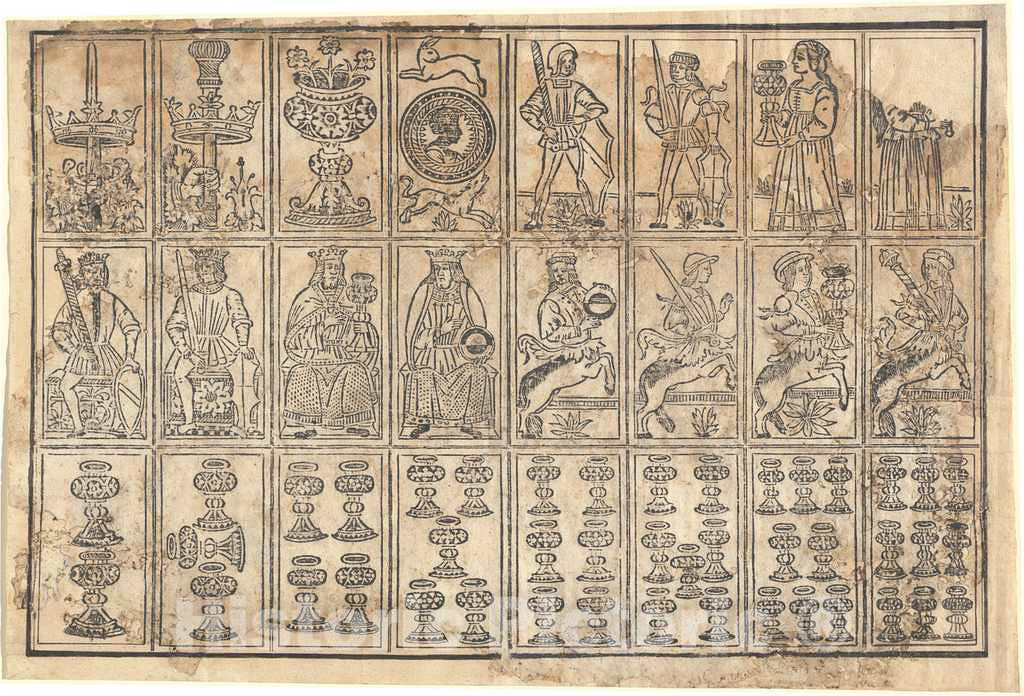 Historic Pictoric ©